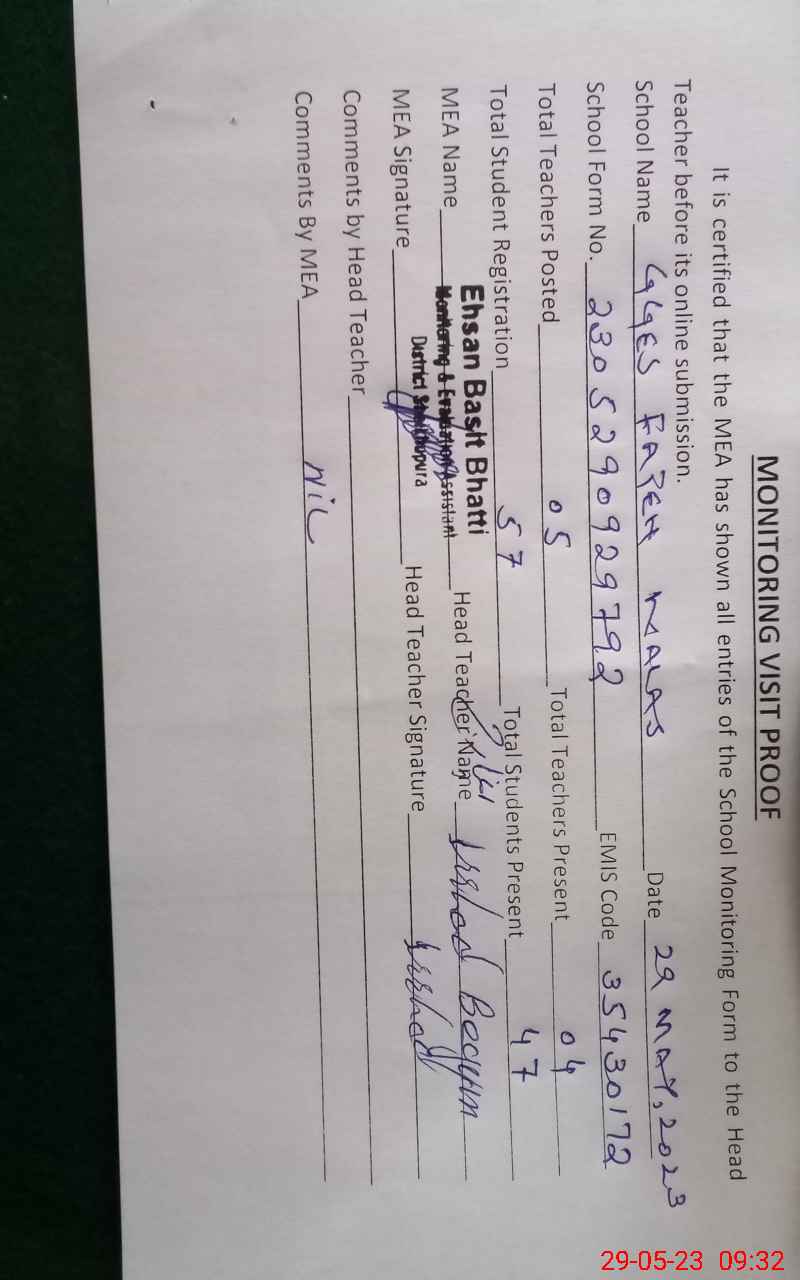 MONITORING VISIT PROOF
It is certified that the MEA has shown all entries of the School Monitoring Form to the Head
Teacher before its online submission.
School Name GGES FATEH WALAS Date 29 MAY, 2023
School Form No. 2305290929792 EMIS Code 35430172
Total Teachers Posted 05 Total Teachers Present 04
Total Student Registration 57 Total Students Present 47
MEA Name Ehsan Basit Bhatti Head Teacher Name Irshad Begum
Monitoring & Evaluation Assistant
District Sheikhupura
MEA Signature Head Teacher Signature Irshad
Comments by Head Teacher
Comments By MEA Nil
29-05-23 09:32